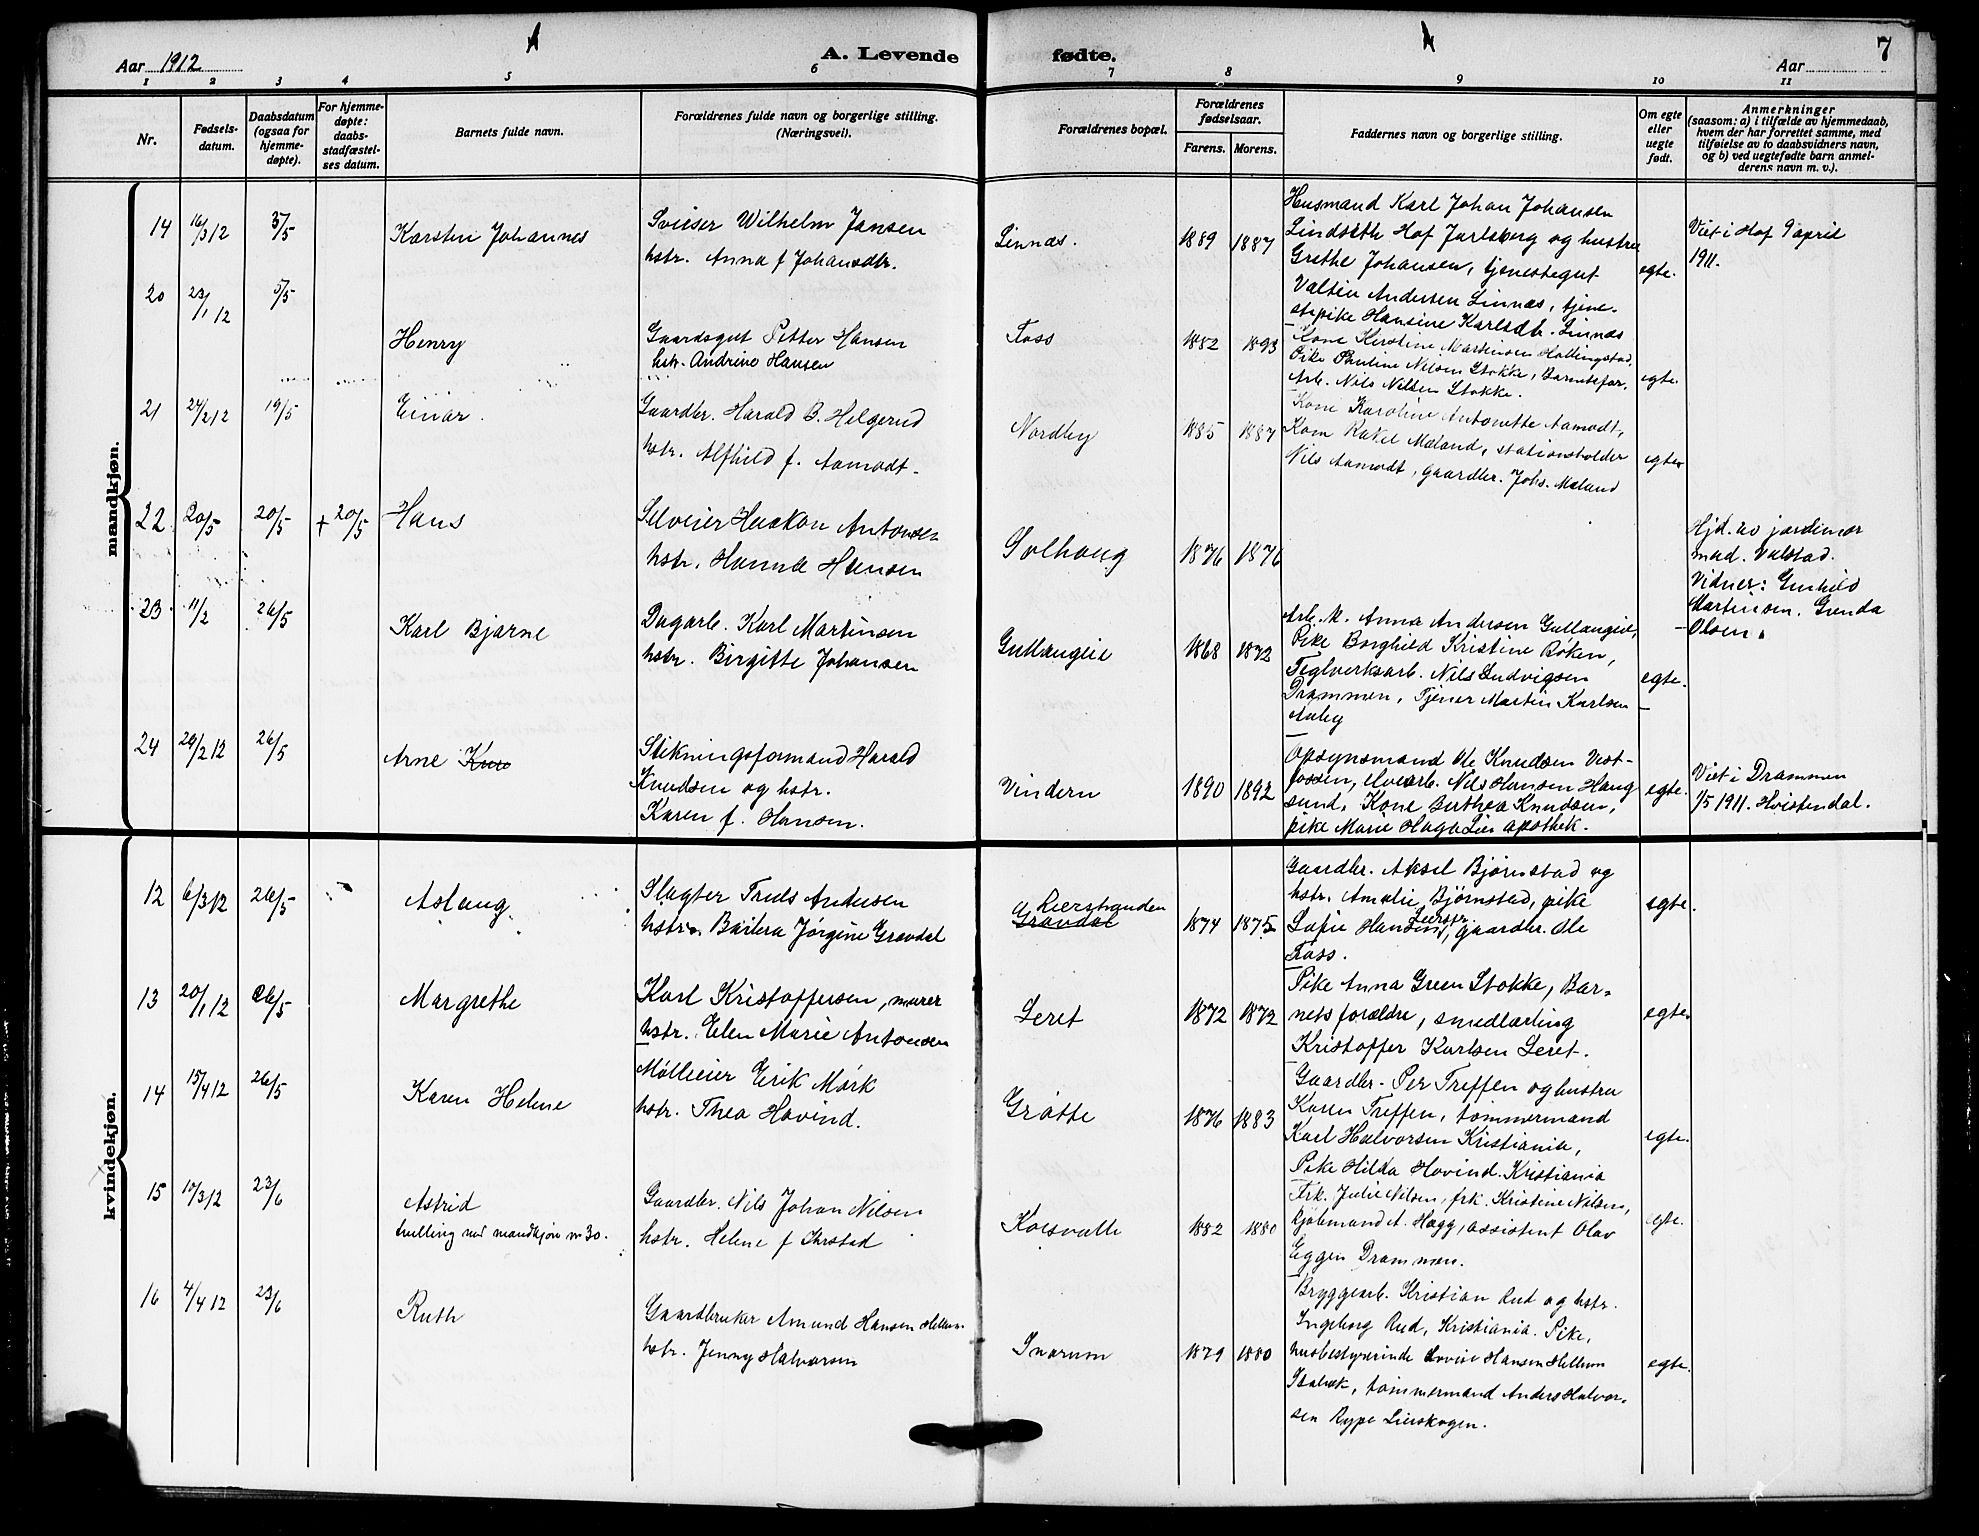 Aar 1912
A. Levende
fødte.
7
Aar
1 2 3 4 5 6 7 8 9 10 11
Nr.
Fødsels-
datum.
Daabsdatum
(ogsaa for
hjemme-
døpte).
For hjemme-
døpte:
daabs-
stadfæstel-
ses datum.
Barnets fulde navn.
Forældrenes fulde navn og borgerlige stilling.
(Næringsvei).
Forældrenes bopæl.
Forældrenes
fødselsaar.
Farens. Morens.
Faddernes navn og borgerlige stilling.
Om egte
eller
uegte
født.
Anmerkninger
(saasom: a) i tilfælde av hjemmedaab,
hvem der har forrettet samme, med
tilføielse av to daabsvidners navn,
og b) ved uegtefødte barn anmel-
derens navn m. v.).
mandkjøn.
14 16/3 12 3/5
Karsten Johannes
Sveiser Wilhelm Jansen
hstr. Anna f Johansdtr.
Linnæs.
1889 1887
Husmand Karl Johan Johansen
Lindseth Hof Jarlsberg og hustru
Grethe Johansen, tjenestegut
Valtin Andersen Linnæs, tjene-
stepike Hansine Karlsdtr. Linnæs
egte.
Viet i Hof 9 april
1911.
20 23/1 12 5/5
Henry
Gaardsgut Petter Hansen
hstr. Andrine Hansen
Foss
1882 1893
Kone Kirstine Martinsen Hallingstad,
Pike Pauline Nilsen Stokke, Barnefar,
Arb. Nils Nilsen Stokke.
egte
21 24/2 12 19/5
Einar.
Gaardbr. Harald B. Helgerud
hstr. Alfhild f. Aamodt-
Nordby
1885 1887
Kone Karoline Antonette Aamodt,
Kone Rakel Mæland, stationsholder
Nils Aamodt, gaardbr. Johs. Mæland
egte
22 20/5 20/5 + 20/5
Hans
Selveier Haakon Antonsen
hstr. Hanna Hansen
Solhaug
1876 1876
Hjd. av jordemor
mad. Valstad.
Vidner: Gunhild
Martinsen. Gunda
Olsen.
23 11/2 26/5
Karl Bjarne
Dagarb. Karl Martinsen
hstr. Birgitte Johansen
Gullaugeie
1868 1872
Arb. k. Anna Andersen Gullaugeie,
Pike Borghild Kristine Bøken,
Teglverksarb. Nils Ludvigsen
Drammen, Tjener Martin Karlsen
Auby
egte.
24 29/2 12 26/5
Arne
Stikningsformand Harald
Knudsen og hstr.
Karen f. Hansen.
Vindern
1890 1892
Opsynsmand Ole Knudsen Vest-
fossen, Elvearb. Nils Hansen Haug
sund, Kone Berthea Knudsen,
pike Marie Haga Lier apothek.
egte.
Viet i Drammen
1/5 1911. Hvistendal.
kvindekjøn.
12 6/3 12 26/5
Aslaug
Slagter Truls Andersen
hstr. Barbra Jørgine Gravdal
Lierstranden
Gravdal
1874 1875
Gaardbr. Aksel Bjørnstad og
hstr. Amalie Bjørnstad, pike
Sofie Hansen, gaardbr. Ole
Foss.
egte.
13 20/1 12 26/5
Margrethe
Karl Kristoffersen, murer
hstr. Elen Marie Antonsen
Leret
1872 1872
Pike Anna Green Stokke, Bar-
nets forældre, smedlærling
Kristoffer Karlsen Leret.
egte.
14 15/4 12 26/5
Karen Helene
Mølleeier Erik Mørk
hstr. Thea Hovind.
Grøtte
1876 1883
Gaardbr. Per Treffen og hustru
Karen Treffen, tømmermand
Karl Halvorsen Kristiania,
Pike Hilda Hovind. Kristiania
egte.
15 10/3 12 23/6
Astrid
tvilling med mandkjøn nr 30.
Gaardbr. Nils Johan Nilsen
hstr. Helene f
Korsvatte
1882 1880
Frk. Julie Nilsen, frk. Kristine Nilsen,
kjøbmand A. Hagg, assistent Olav
Eggen Drammen.
egte.
16 4/4 12 23/6
Ruth
Gaardbruker Amund Hansen Hellum
hstr. Jenny Halvorsen
Snarum
1879 1880
Bryggearb. Kristian Rud og hstr.
Ingeborg Rud, Kristiania. Pike,
husbestyrerinde Lovise Hansen Hellum
Stabæk, tømmermand Anders Halvor-
sen Rype Lierskogen.
egte.